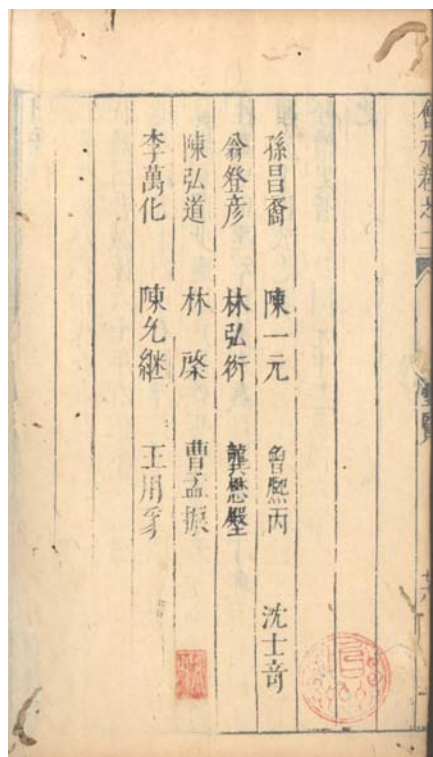 孫昌裔 陳一元 曾熈丙 沈士奇
翁登彦 林弘衍 龔懋壂
陳弘道 林 棨 曹孟振
李萬化 陳允継 王用